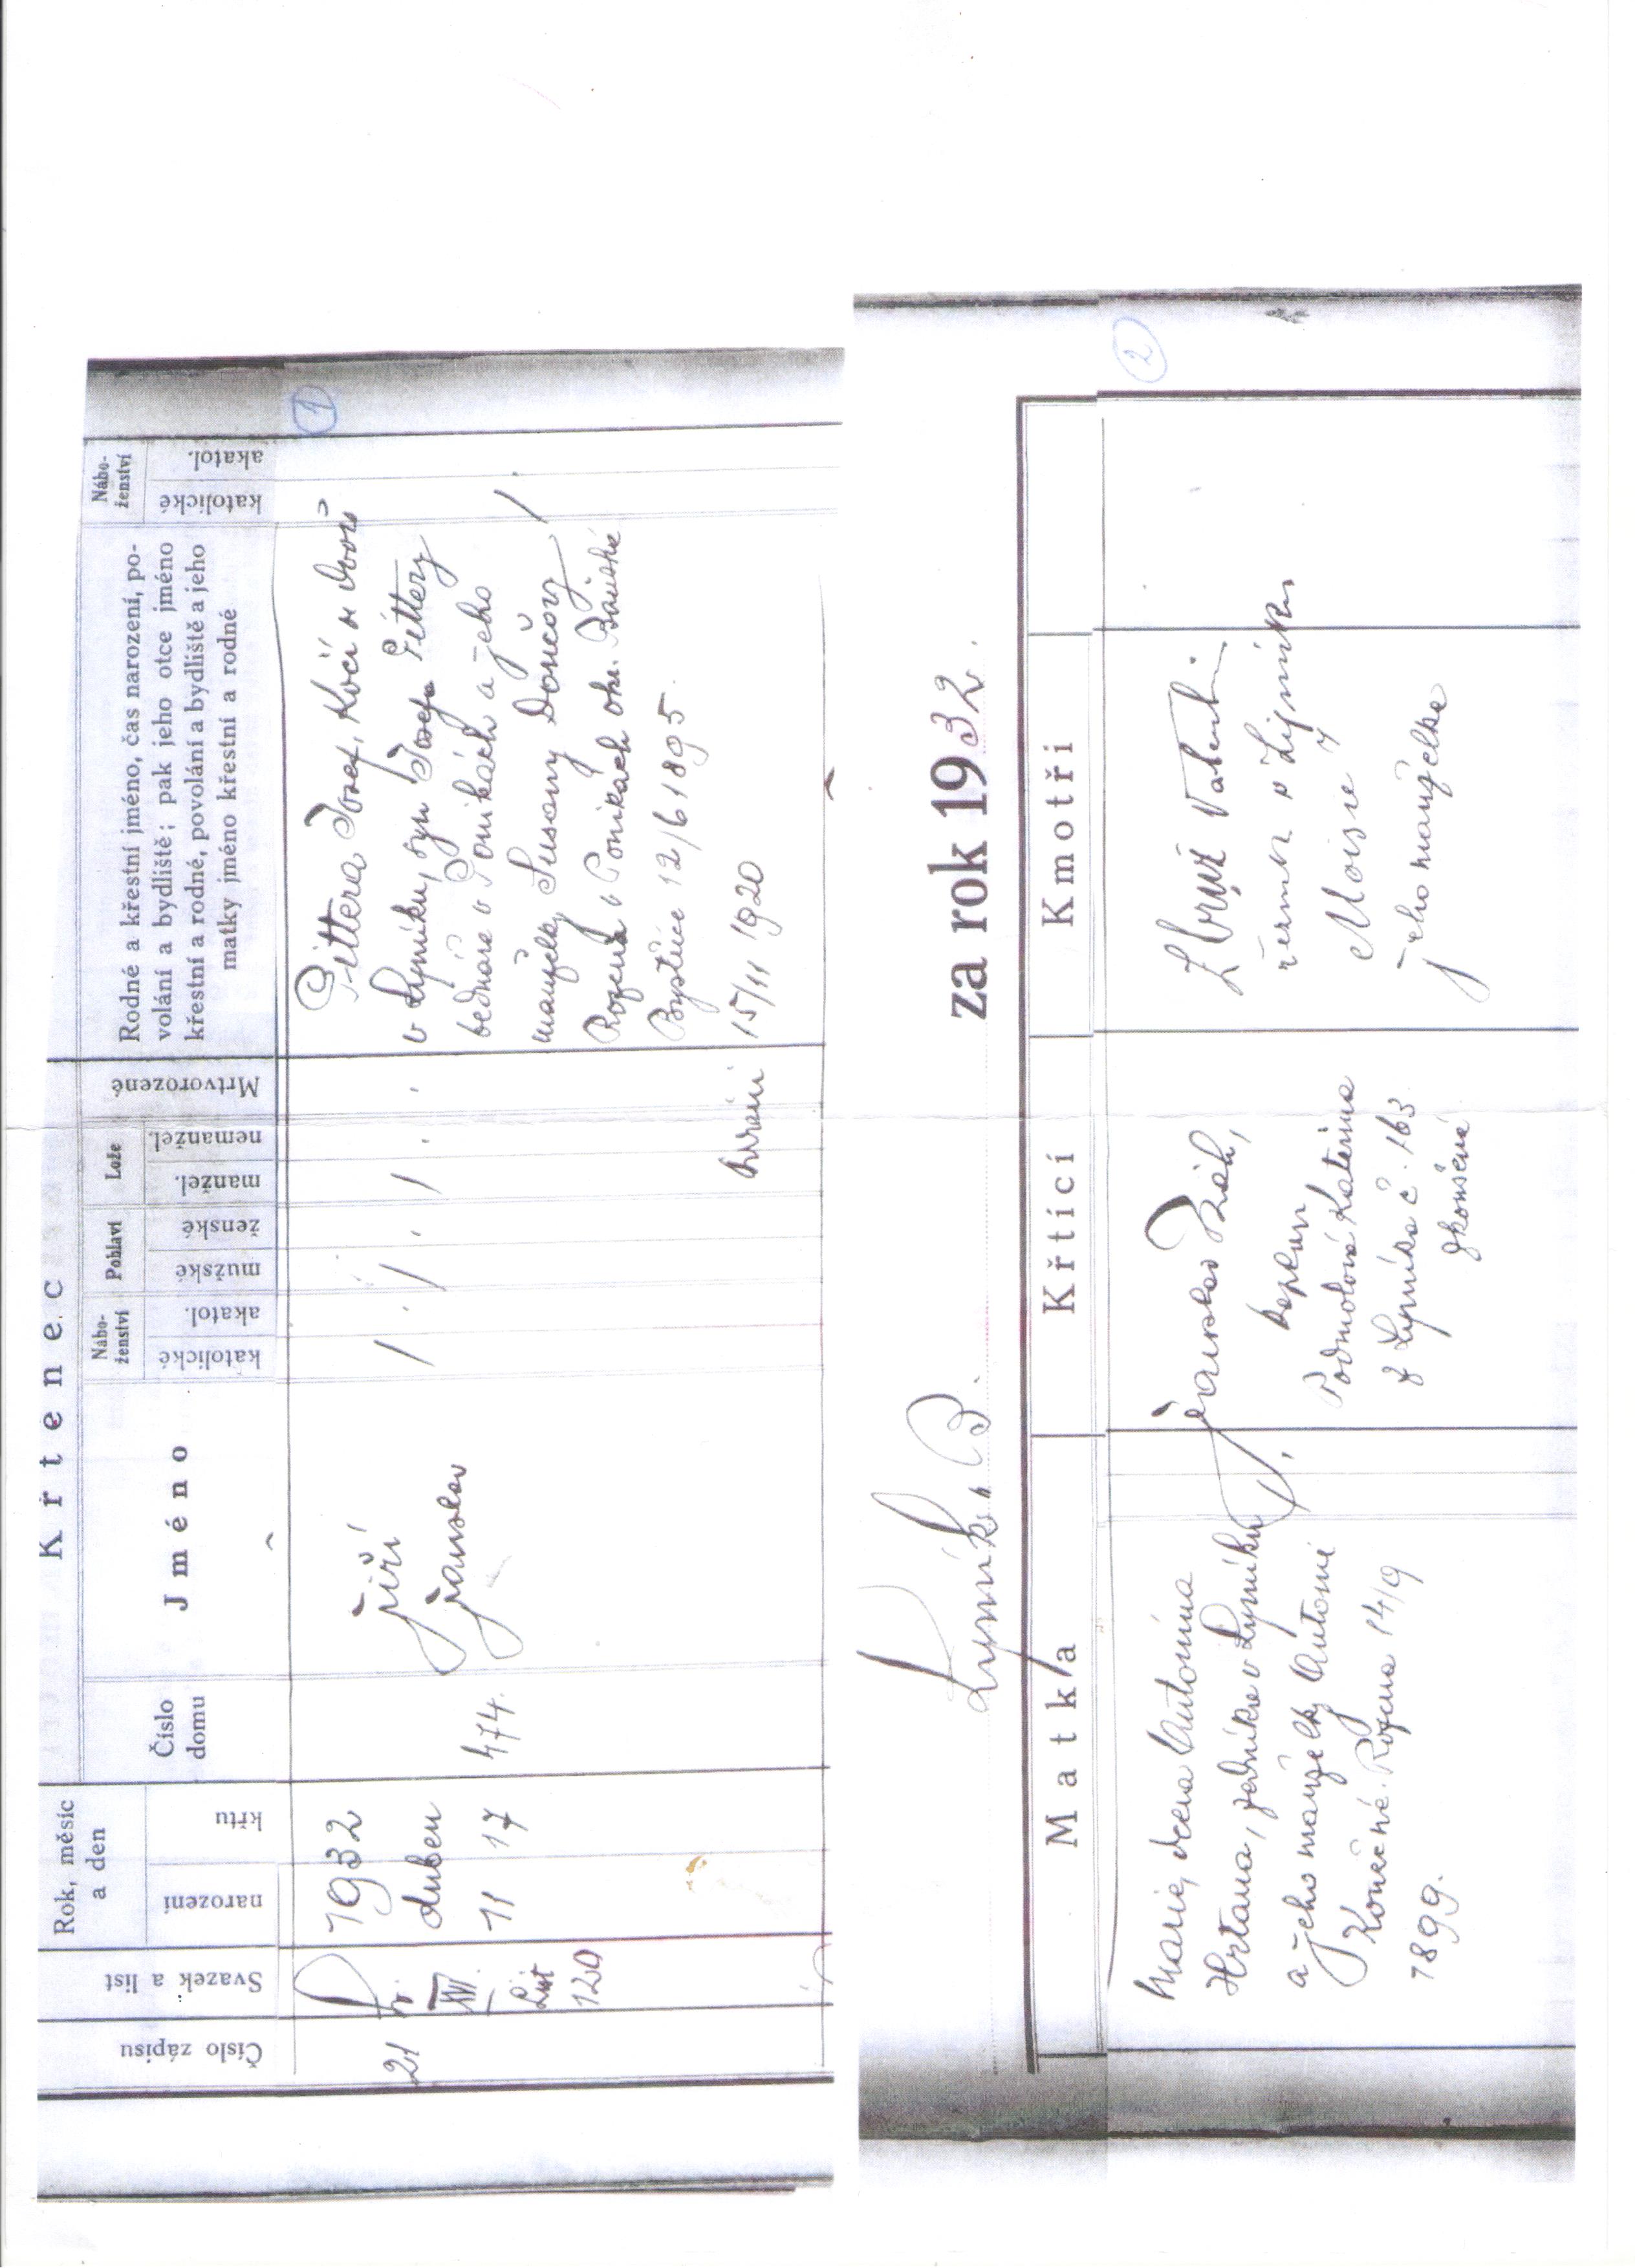 Křtenec
Číslo zápisu
Svazek a list
Rok, měsíc
a den
narození
křtu
Číslo
domu
Jméno
Nábo-
ženství
katolické
akatol.
Pohlaví
mužské
ženské
Lože
manžel.
nemanžel.
Mrtvorozené
Rodné a křestní jméno, čas narození, po-
volání a bydliště; pak jeho otce jméno
křestní a rodné, povolání a bydliště a jeho
matky jméno křestní a rodné
Nábo-
ženství
katolické
akatol.
1
21
XVI.
List
120
1932
duben
11 17
474.
Jiří
Jaroslav
Pittera Josef, Kočí ve dvoře
v Lipníku, syn Josefa Pittery
bednáře v Ponikách a jeho
manželky Susany Dončovy
Rozena v Ponikách okr. Báňské
Bystřice 12/6 1895.
15/11 1920
Lipník B.
za rok 1932.
Matka
Křtící
Kmotři
2
Marie, dcera Antonína
Hrtana, zedníka v Lipníku
a jeho manželky Antonie
Konečné. Rozena 14/9
1899.
Jaroslav
kaplan
Podmolová Kateřina
z Lipníka č. 163
zkoušená
Valentin
řezník v Lipníku
jeho manželka